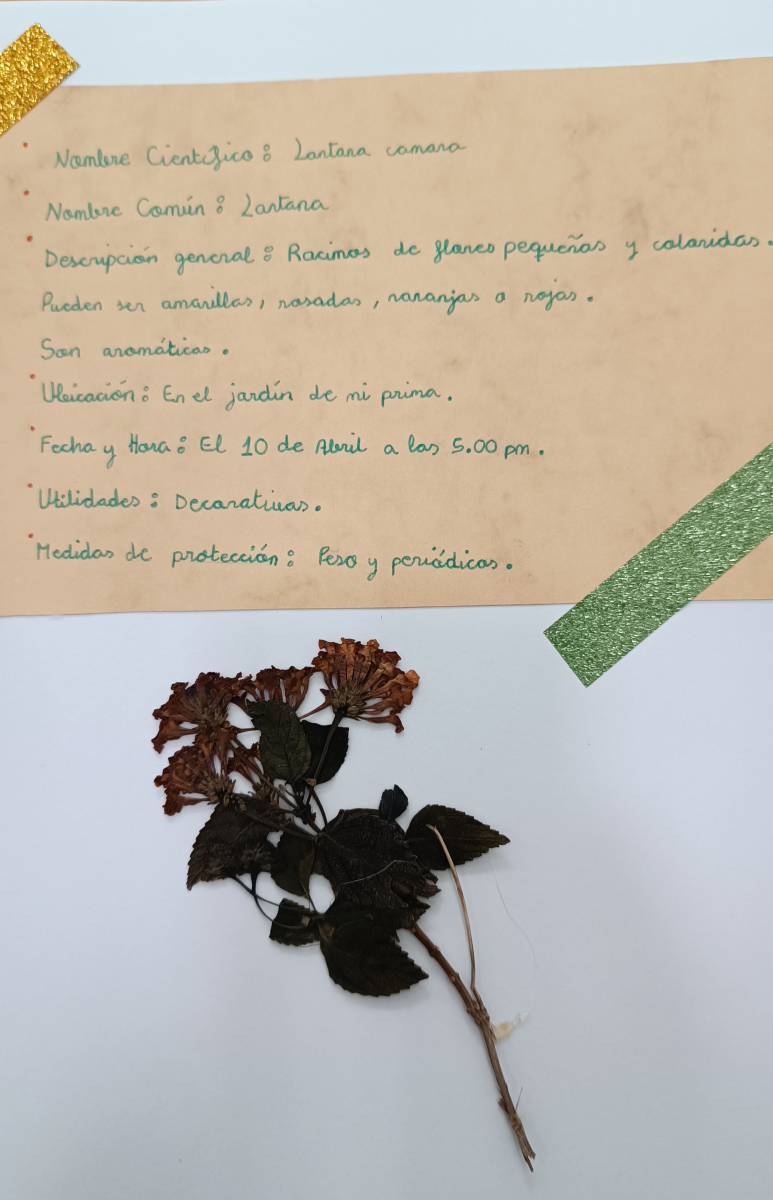 Nombre Científico: Lantana camara
Nombre Común: Lantana
Descripción general: Racimos de flores pequeñas y coloridas.
Pueden ser amarillas, rosadas, naranjas o rojas.
Son aromáticas.
Ubicación: En el jardín de mi prima.
Fecha y Hora: El 10 de Abril a las 5.00 pm.
Utilidades: Decorativas.
Medidas de protección: Peso y periódicos.